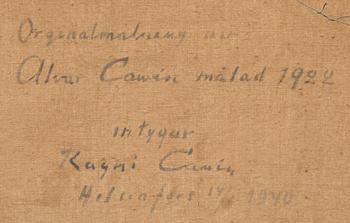 Orginalmålning av
Alvar Cawén målad 1922
intygar
Ragni Cawén
Helsingfors 1940